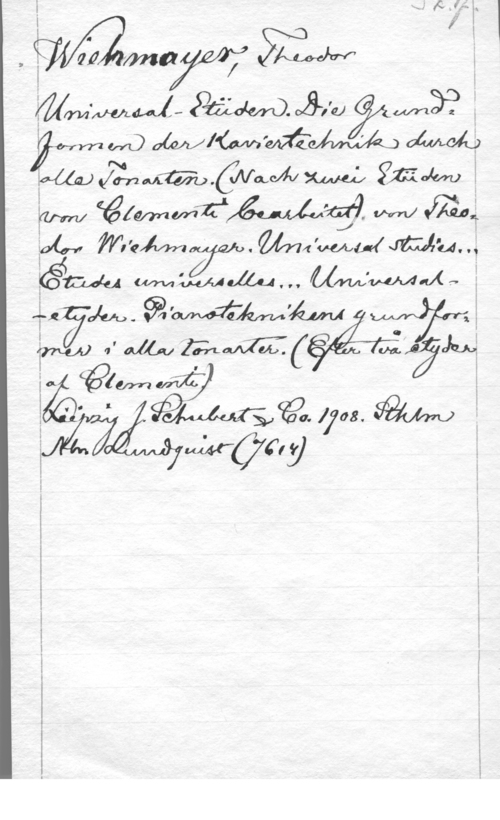 Wiehmayer, Theodor
Universal-Etüden. Die Grund=
formen der Klaviertechnik durch
alle Tonarten. (Nach zwei Etüden
von Clementi bearbeitet). von Theo=
dor Wiehmayer. Universal studies...
Études universelles... Universal-
-etyder. Pianoteknikens grundfor=
mer i alla tonarter. (Efter två etyder
af Clementi)
Leipzig J. Schuberth & Co. 1908. Sthlm
Abr. Lundquist (7614)